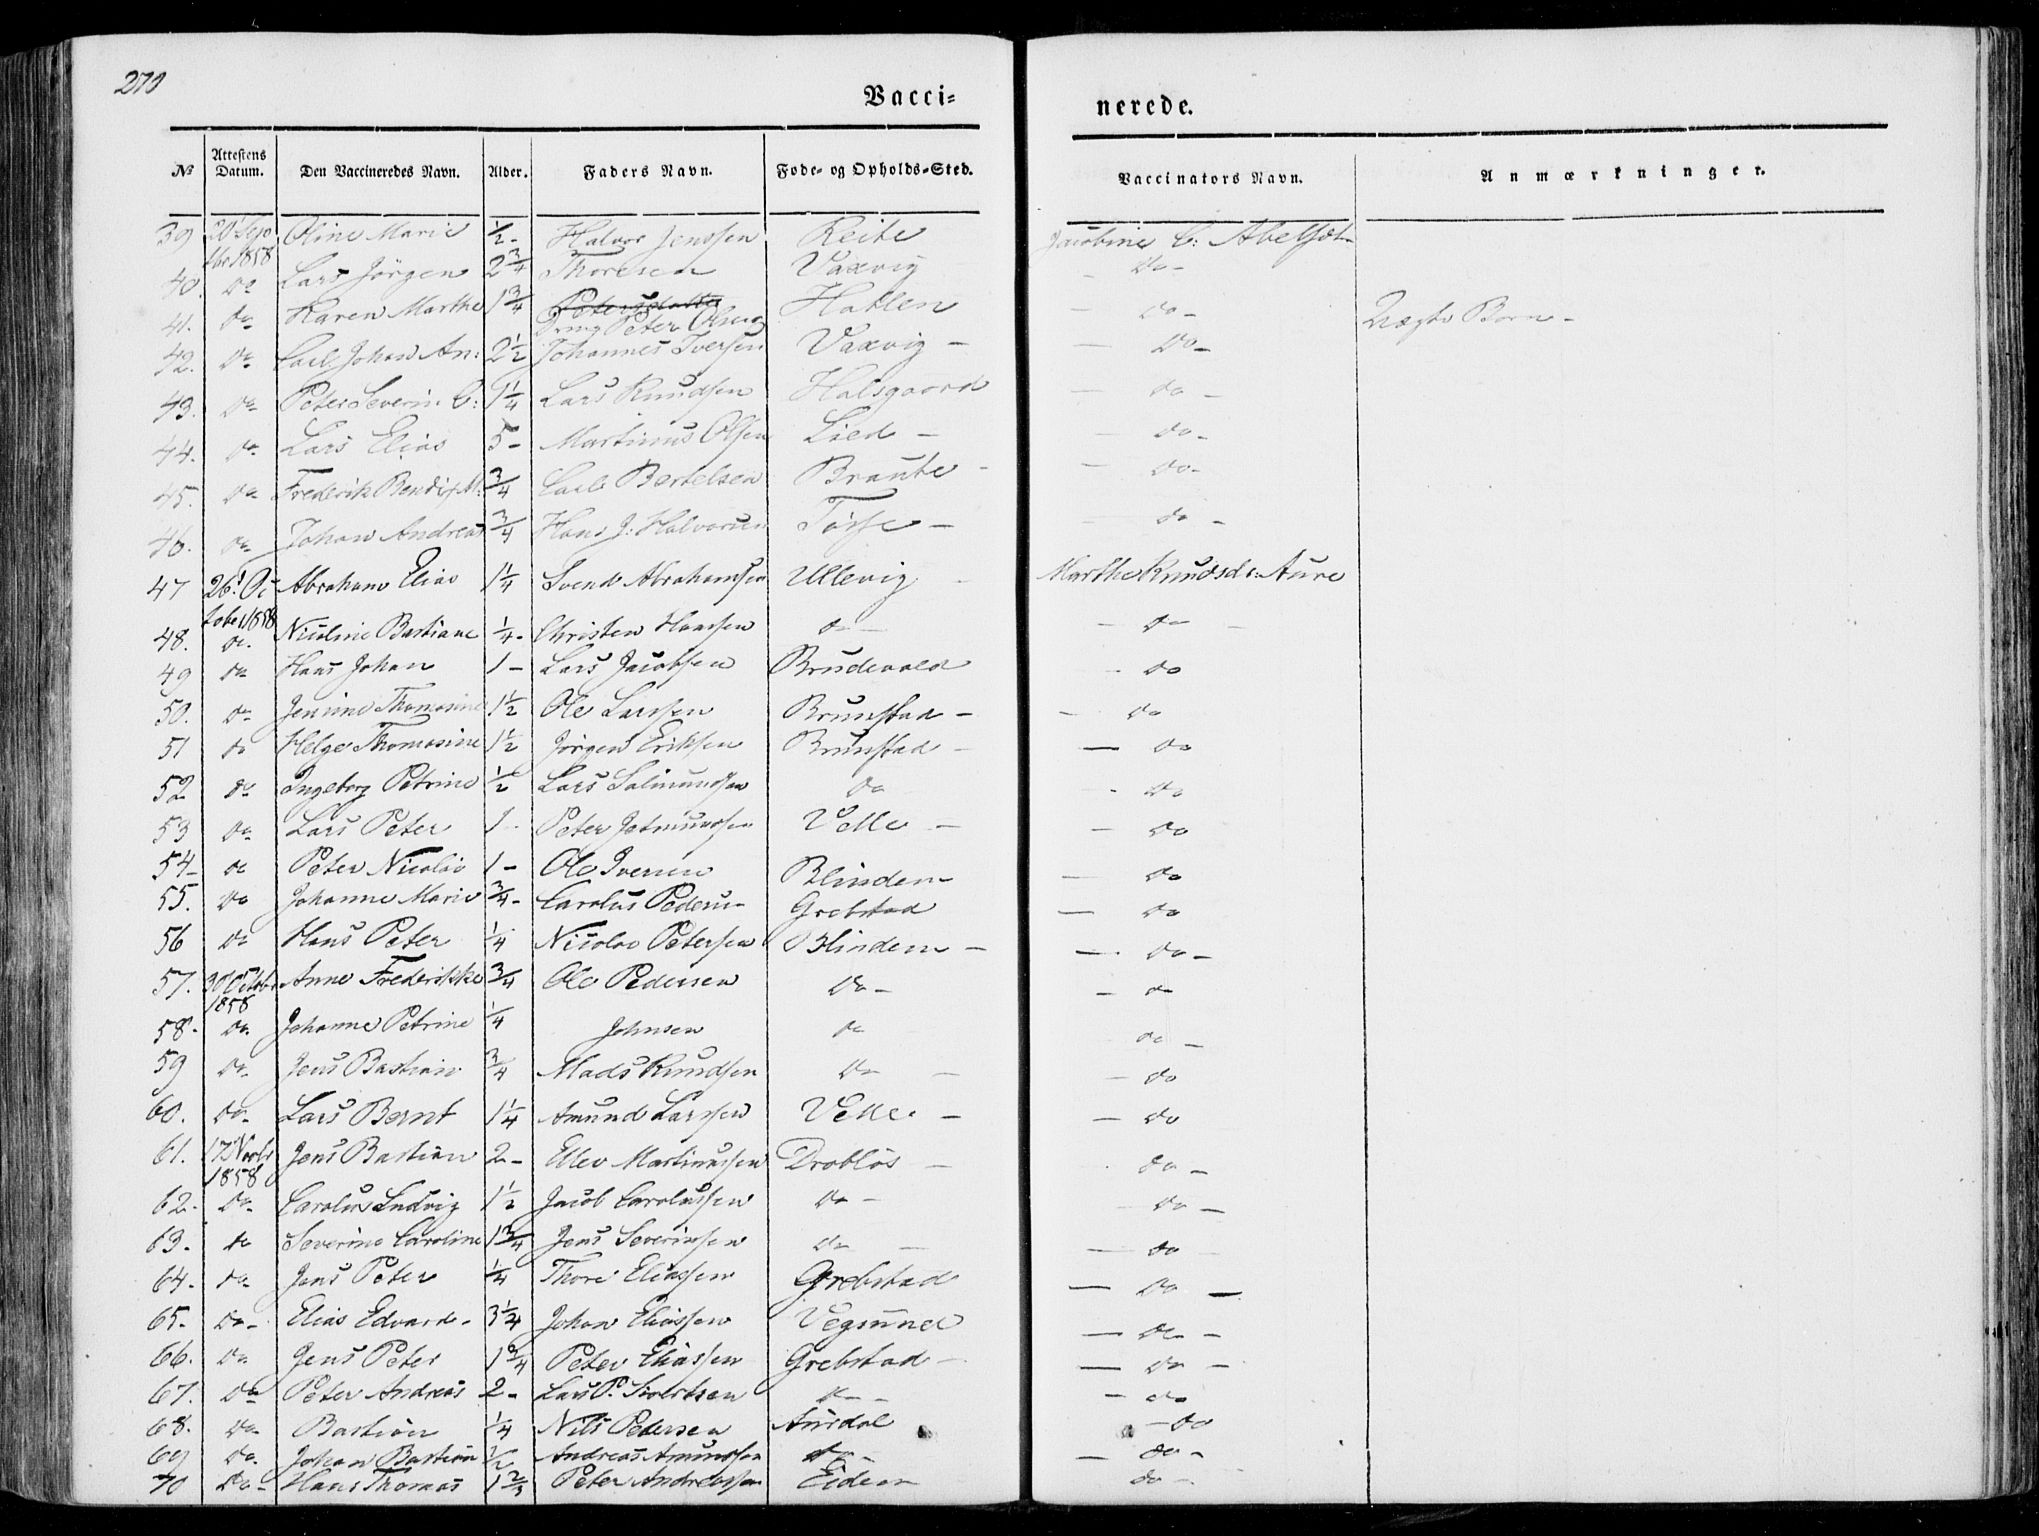 270
Vacci=
nerede.
№ Attestens Datum. Den Vaccineredes Navn. Alder. Faders Navn. Fode- og Opholds-Sted. Vaccinators Navn. Anmærkninger.
39 20 Sep tbr 1858 Oline Marie ½- Halvor Jenssen Reite Jacobine C: Abelset-
40. do Lars Jörgen 2¾ Thoresen Vaxvig do-
41. do Karen Marthe 1¾ Peter Olsen Hatlen do- Uægte Barn-
42. do Carl Johan An: 2½ Johannes Iversen Vaxvig - do-
43. do Peter Severin C: 1¼ Lars Knudsen Halsgaard do -
44. do Lars Elias 5- Martinus Olsen Lied - do-
45. do Frederik Bendix M: ¾ Carl Bertelsen Braute - do-
46. do Johan Andreas ¾ Hans J: Halvorsen Tösse - do -
47 26. Oc tober 1858 Abraham Elias 1¼ Svend Abrahamsen Ullevig - Marthe Knudsdr: Aure
48. do. Nicoline Bastiane ¼- Christen Hanssen do - do -
49 do Hans Johan 1- Lars Jacobsen Brudevold - do
50. do Jenine Thomasine 1½ Ole Larssen Brunstad - - do
51 do Helge Thomasine 1½ Jörgen Eriksen Brunstad - - do
52 do Ingeborg Petrine ½ Lars Salmundsen do - do
53 do Lars Peter 1- Peter Jetmundsen Velle - - do
54- do Peter Nicolai 1- Ole Iversen Blindem - do
55. do Johanne Marie ¾- Carolus Pedersen Grebstad - do
56 do Hans Peter ¼ Nicolai Petersen Blindem - - do-
57. 30 Octobr 1858 Anne Frederikke ¾ Ole Pedersen do- - do
58- do. Johanne Petrine ¼ Johnsen do do -
59 do Jens Bastian ¾ Mads Knudsen do - - do
60. do- Lars Bernt 1¼ Amund Larssen Velle. - - do
61. 17 Novbr 1858 Jens Bastian 2- Ellev Martinussen Droblös - do -
62. do- Carolus Ludvig 1½ Jacob Carolussen do - - do -
63. do Severine Caroline 1¾ Jens Severinsen do - - do
64- do Jens Peter ¼ Thore Eliassen Grebstad - do -
65- do- Elias Edvard- 3¼ Johan Eliassen Vegsund - do -
66. do Jens Peter 1¾ Peter Eliassen Grebstad - - do -
67. do Peter Andreas 2- Lars P. Sivertsen do - - do
68. do- Bastian ¼ Nils Petersen Aursdal - do
69 do. Johan Bastian ½ Andreas Amundsen do- - do -
70 do- Hans Thomas 1⅔ Peter Andreassen Eidem do -